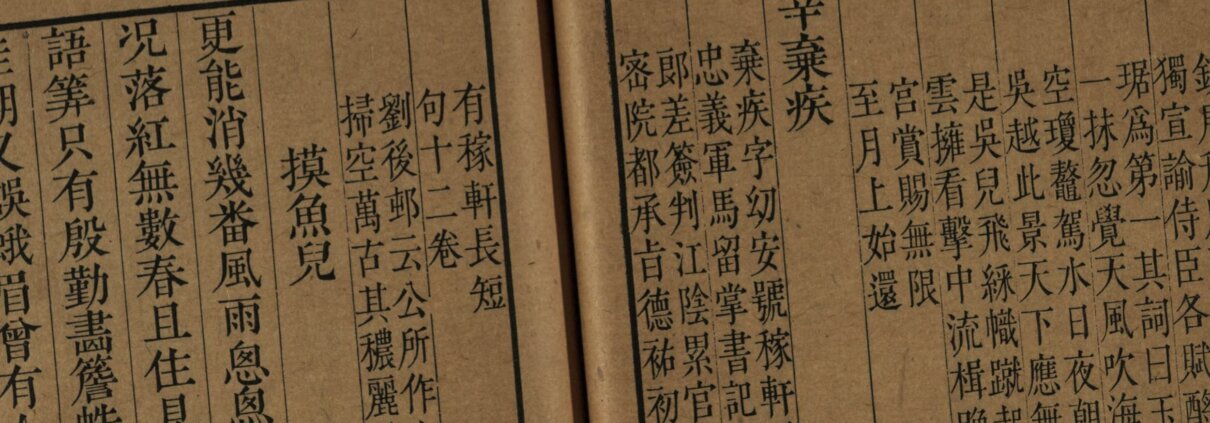 獨宣諭侍臣各賦酹
琚爲第一其詞曰玉
一抹忽覺天風吹海
空瓊鼇駕水日夜朝
吳越此景天下應無
是吳兒飛綵幟蹴起
雲擁看擊中流楫晚
宮賞賜無限
至月上始還
辛棄疾
棄疾字幼安號稼軒
忠義軍馬留掌書記
郞差簽判江陰累官
宻院都承㫖德祐初
有稼軒長短
句十二卷
劉後邨云公所作
掃空萬古其穠麗
摸魚兒
更能消幾番風雨怱怱
况落紅無數春且住見
語筭只有殷勤畫簷蛛
期又誤蛾眉曾有